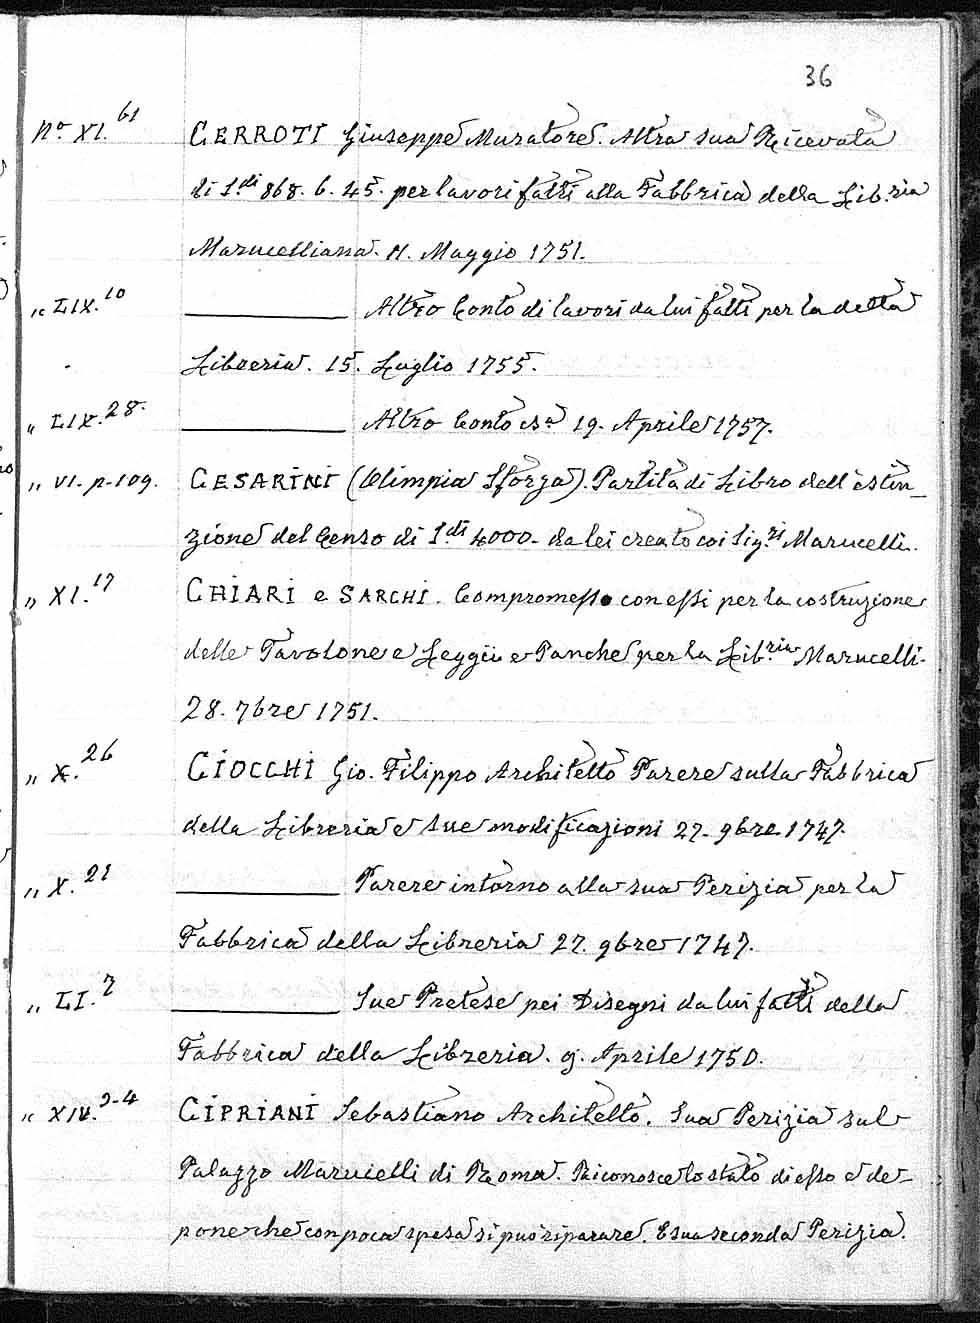 36
Nº. XI.61 CERROTI Giuseppe Muratore. Altra sua Ricevuta
di S.di 868. 6. 45. per lavori fatti alla Fabbrica della Lib.ria
Marucelliana. 11. Maggio 1751.
" LIX.10 ——— Altro Conto di lavori da lui fatti per la detta
Libreria. 15. Luglio 1755.
" LIX.28. ——— Altro Conto 19. Aprile 1757.
" VI. p. 109. CESARINI (Olimpia Sforza). Partita di Libro dell'estin_
zione del Censo di S.di 4000 - da lei creato coi Sig.ri Marucelli.
" XI.17 CHIARI e SARCHI. Compromesso con essi per la costruzione
delle Tavolone e Leggii e Panche per la Lib.ria Marucelli-
28. 7bre 1751.
" X.26 CIOCCHI Gio. Filippo Architetto Parere sulla Fabbrica
della Libreria e sue modificazioni 27. 9bre 1747.
" X.21 ——— Parere intorno alla sua Perizia per la
Fabbrica della Libreria 27. 9bre 1747.
" LI.7 ——— Sue Pretese pei Disegni da lui fatti della
Fabbrica della Libreria. 9. Aprile 1750.
" XIV.3-4 CIPRIANI Sebastiano Architetto. Sua Perizia sul
Palazzo Marucelli di Roma. Riconosce lo stato di esso e de_
pone che con poca spesa si può riparare. E sua seconda Perizia.